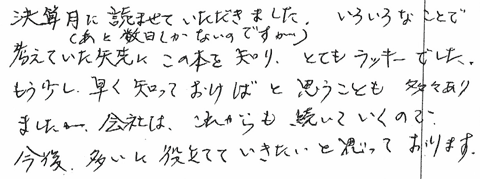 決算月に読ませていただきました。いろいろなことで
(あと数日しかないのですが…)
考えていた矢先にこの本を知り、とてもラッキーでした。
もう少し早く知っておけばと思うことも多々あり
ましたが、会社は、これからも続いていくので、
今後、多いに役立てていきたいと思っております。